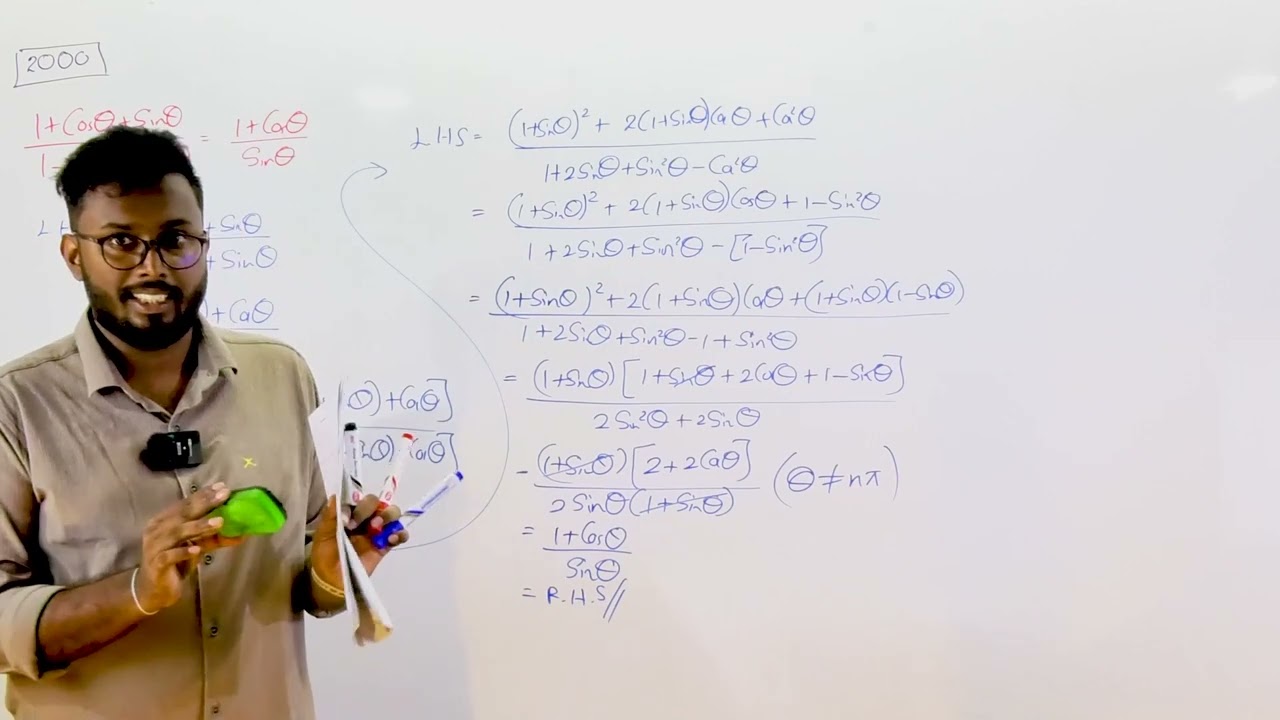 2000
1+Cosθ+Sinθ = 1+Cosθ
1- Sinθ
L +Sinθ
+Sinθ
1+Cosθ
θ)+Cosθ]
Sinθ) Cosθ]
LHS = (1+Sinθ)² + 2(1+Sinθ)Cosθ + Cos²θ
1+2Sinθ+Sin²θ-Cos²θ
= (1+Sinθ)² + 2(1+Sinθ)Cosθ + 1-Sin²θ
1+2Sinθ+Sin²θ-[1-Sin²θ]
= (1+Sinθ)²+2(1+Sinθ)Cosθ+(1+Sinθ)(1-Sinθ)
1+2Sinθ+Sin²θ-1+Sin²θ
= (1+Sinθ)[1+Sinθ+2Cosθ+1-Sinθ]
2Sin²θ+2Sinθ
= (1+Sinθ)[2+2Cosθ] (θ≠nπ)
2Sinθ(1+Sinθ)
= 1+Cosθ
Sinθ
= R.H.S//